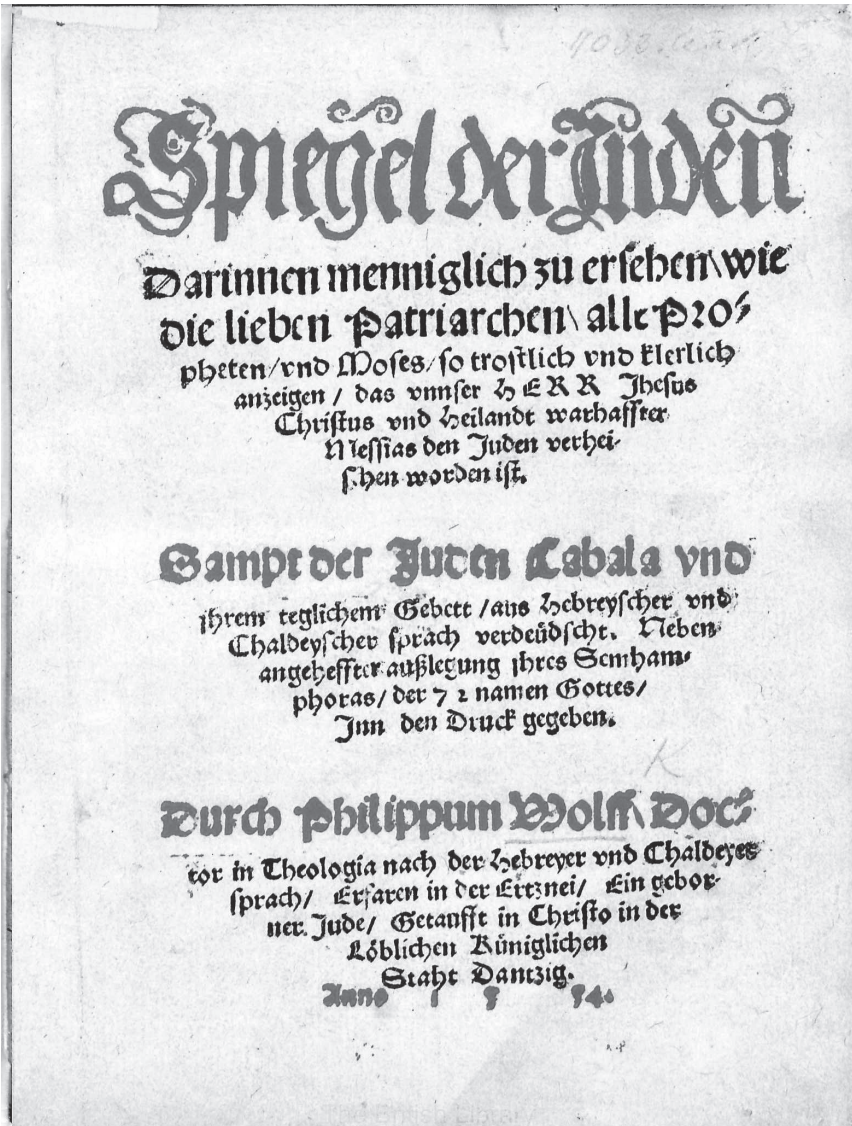 Spiegel der Juden
Darinnen menniglich zu ersehen\ wie
die lieben Patriarchen\ alle Pro⸗
pheten/ vnd Moses/ so trostlich vnd klerlich
anzeigen / das vnnser HERR Jhesus
Christus vnd Heilandt warhaffter
Messias den Juden verhei⸗
schen worden ist.
Sampt der Juden Cabala vnd
jhrem teglichem Gebett / aus Hebreyscher vnd
Chaldeyscher sprach verdeüdscht. Neben
angeheffter außlegung jhres Semham⸗
phoras/ der 72 namen Gottes/
Jnn den Druck gegeben.
K
Durch Philippum Wolff\ Doc⸗
tor in Theologia nach der Hebreyer vnd Chaldeyer
sprach/ Erfaren in der Ertznei/ Ein gebor⸗
ner Jude/ Getaufft in Christo in der
Löblichen Küniglichen
Staht Dantzig.
Anno 1 5 54.
The British Library